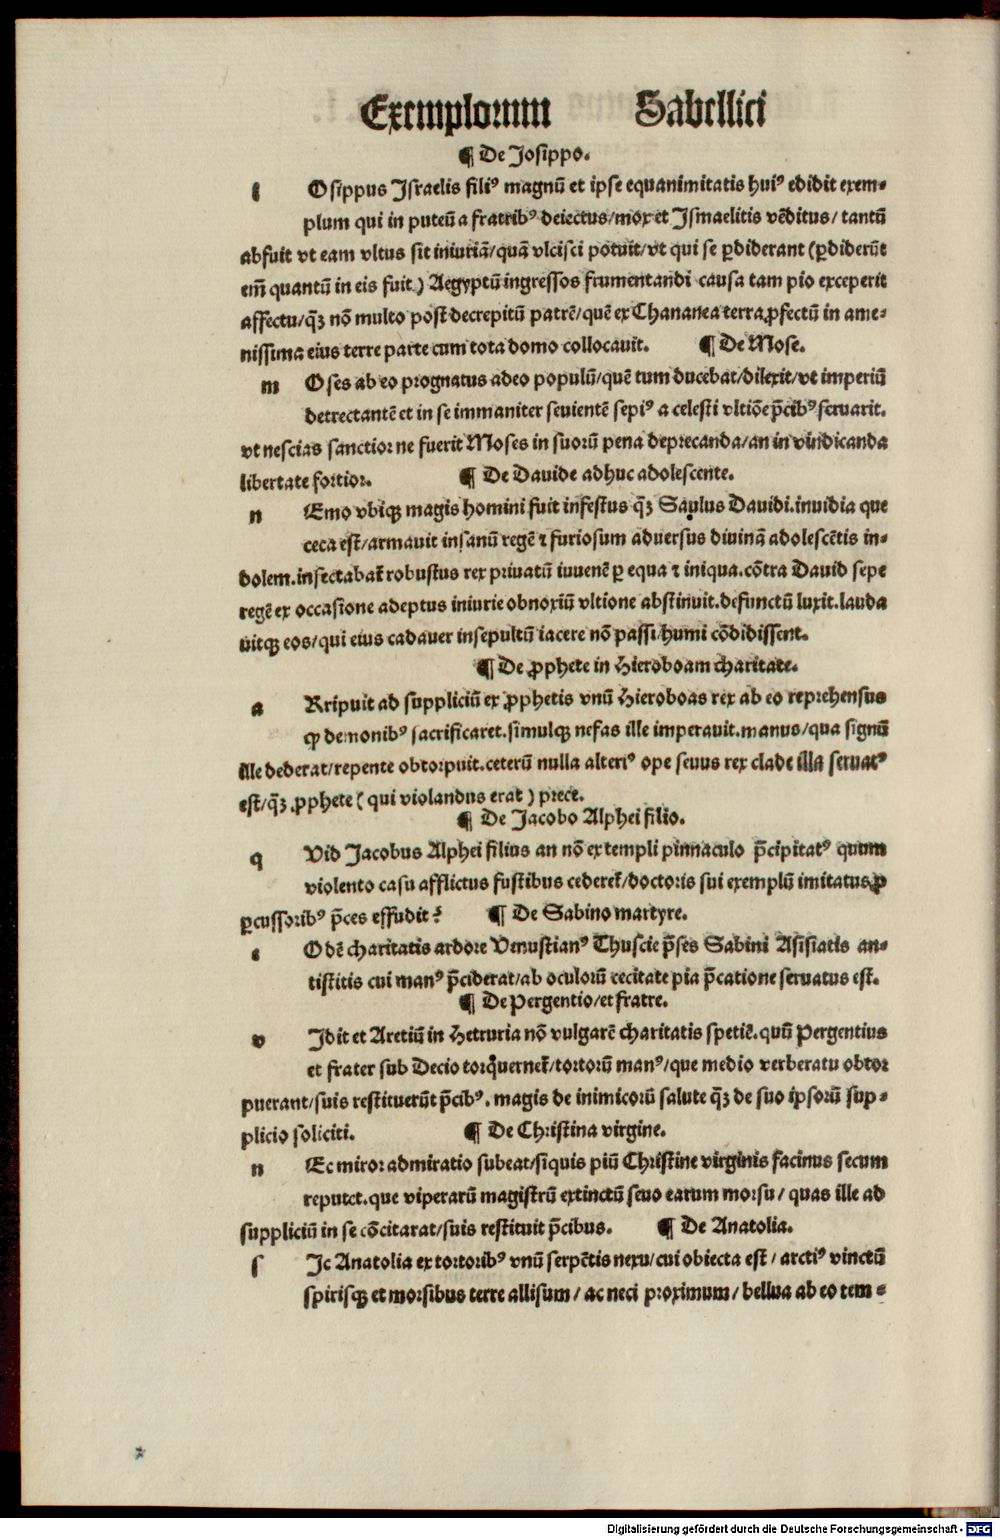 Exemplorum Sabellici
¶ De Josippo.
i Osippus Israelis filiꝰ magnũ et ipse equanimitatis huiꝰ edidit exem⸗
plum qui in puteũ a fratribꝰ deiectus/mox et Ismaelitis vẽditus/ tantũ
abfuit vt eam vltus sit iniuriã/quã vlcisci potuit/vt qui se ꝑdiderant (ꝑdiderũt
em̃ quantũ in eis fuit) Aegyptũ ingressos frumentandi causa tam pio exceperit
affectu/q̃ꝫ nõ multo post decrepitũ patrẽ/quẽ ex Chananea terra ꝓfectũ in ame⸗
nissima eius terre parte cum tota domo collocauit. ¶ De Mose.
m Oses ab eo prognatus adeo populũ/quẽ tum ducebat/dilexit/vt imperiũ
detrectantẽ et in se immaniter seuientẽ sepiꝰ a celesti vltiõe p̃cibꝰ seruarit.
vt nescias sanctior ne fuerit Moses in suorũ pena deprecanda/an in vindicanda
libertate fortior. ¶ De Dauide adhuc adolescente.
n Emo vbiqꝫ magis homini fuit infestus q̃ꝫ Saulus Dauidi.inuidia que
ceca est/armauit insanũ regẽ ⁊ furiosum aduersus diuinã adolescẽtis in⸗
dolem.insectabat̃ robustus rex priuatũ iuuenẽ ꝑ equa ⁊ iniqua.cõtra Dauid sepe
regẽ ex occasione adeptus iniurie obnoxiũ vltione abstinuit.defunctũ luxit.lauda
uitqꝫ eos/qui eius cadauer insepultũ iacere nõ passi/humi cõdidissent.
¶ De ꝓphete in Hieroboam charitate.
a Rripuit ad suppliciũ ex ꝓphetis vnũ Hieroboas rex ab eo reprehensus
ꝙ demonibꝰ sacrificaret.simulqꝫ nefas ille imperauit.manus/qua signũ
ille dederat/repente obtorpuit.ceterũ nulla alteriꝰ ope seuus rex clade illa seruatꝰ
est/q̃ꝫ ꝓphete (qui violandus erat) prece.
¶ De Jacobo Alphei filio.
q Vid Jacobus Alphei filius an nõ ex templi pinnaculo p̃cipitatꝰ quum
violento casu afflictus fustibus cederet̃/doctoris sui exemplũ imitatus ꝓ
ꝑcussoribꝰ p̃ces effudit? ¶ De Sabino martyre.
e Odẽ charitatis ardore Venustianꝰ Thuscie p̃ses Sabini Asisiatis an⸗
tistitis cui manꝰ p̃ciderat/ab oculorũ cecitate pia p̃catione seruatus est.
¶ De Pergentio/et fratre.
v Idit et Aretiũ in Hetruria nõ vulgarẽ charitatis speciẽ.quũ Pergentius
et frater sub Decio torq̃rent̃/tortorũ manꝰ/que medio verberatu obtor
puerant/suis restituerũt p̃cibꝰ. magis de inimicorũ salute q̃ꝫ de suo ipsorũ sup⸗
plicio soliciti. ¶ De Christina virgine.
n Ec miror admiratio subeat/siquis piũ Christine virginis facinus secum
reputet.que viperarũ magistrũ extinctũ seuo earum morsu/ quas ille ad
suppliciũ in se cõcitarat/suis restituit p̃cibus. ¶ De Anatolia.
s Ic Anatolia ex tortoribꝰ vnũ serpẽtis nexu/cui obiecta est/ arctiꝰ vinctũ
spirisqꝫ et morsibus terre allisum/ ac neci proximum/ bellua ab eo tem⸗
Digitalisierung gefördert durch die Deutsche Forschungsgemeinschaft - DFG